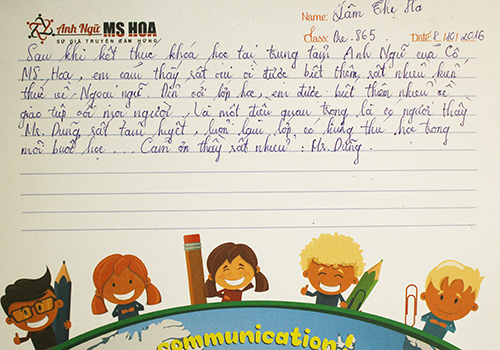 Anh Ngữ MS HOA
SỨ GIẢ TRUYỀN CẢM HỨNG
Name: Lâm Thị Hà
Class: Pre.S65
Date: /10/2016
Sau khi kết thúc khóa học tại trung tâm Anh Ngữ của Cô
MS. Hoa, em cảm thấy rất vui vì được biết thêm rất nhiều kiến
thức về Ngoại ngữ. Đến với lớp học, em được biết thêm nhiều về
giao tiếp với mọi người, Và một điều quan trọng là có người thầy
Mr. Dũng rất tâm huyết, luôn làm lớp có hứng thú học trong
mỗi buổi học... Cảm ơn thầy rất nhiều : Mr. Dũng.
communication!